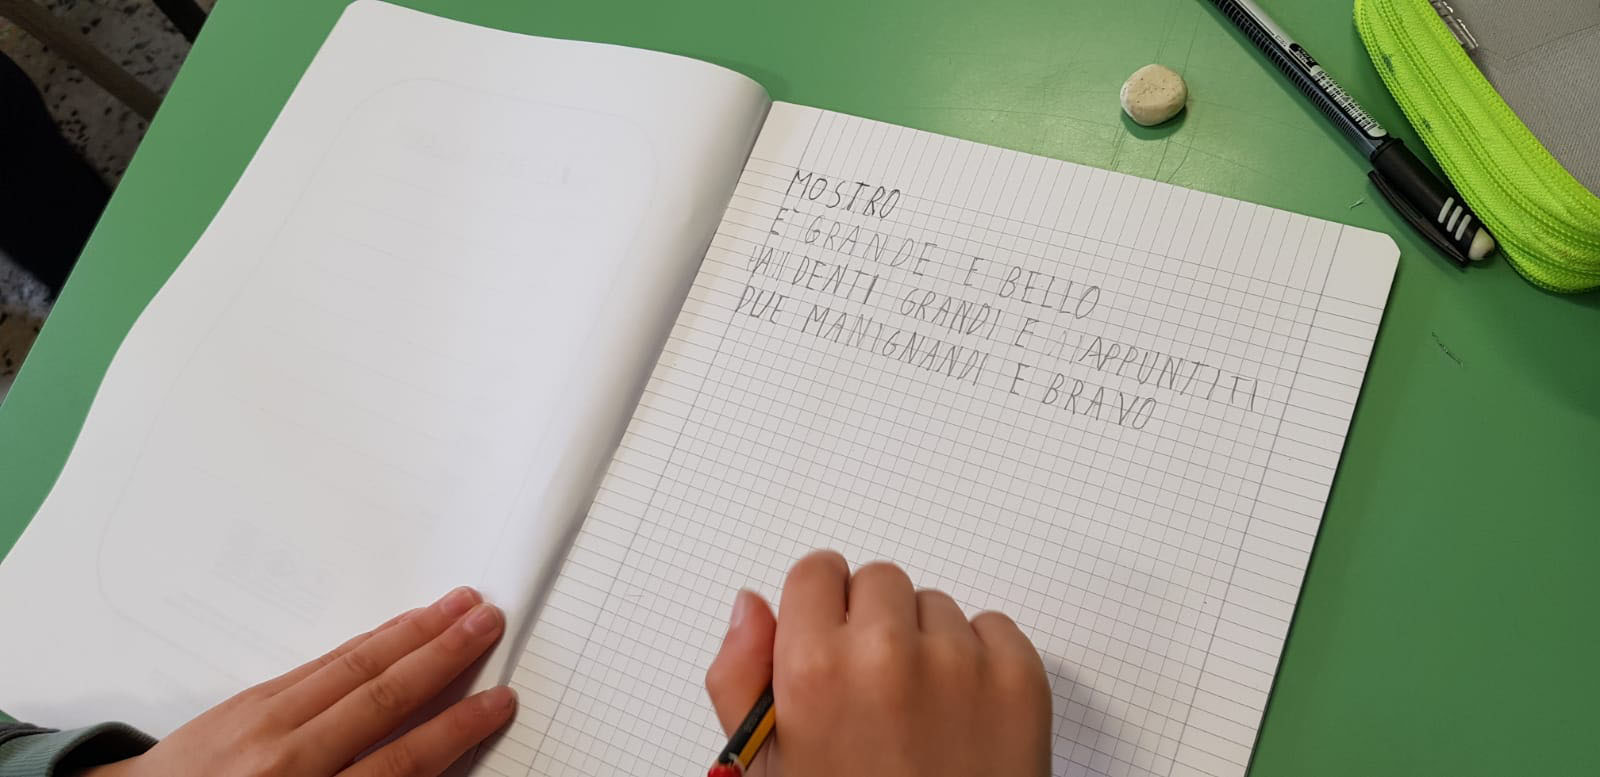 MOSTRO
È GRANDE E BELLO
HA I DENTI GRANDI E APPUNTITI
DUE MANIGNANDI E BRAVO